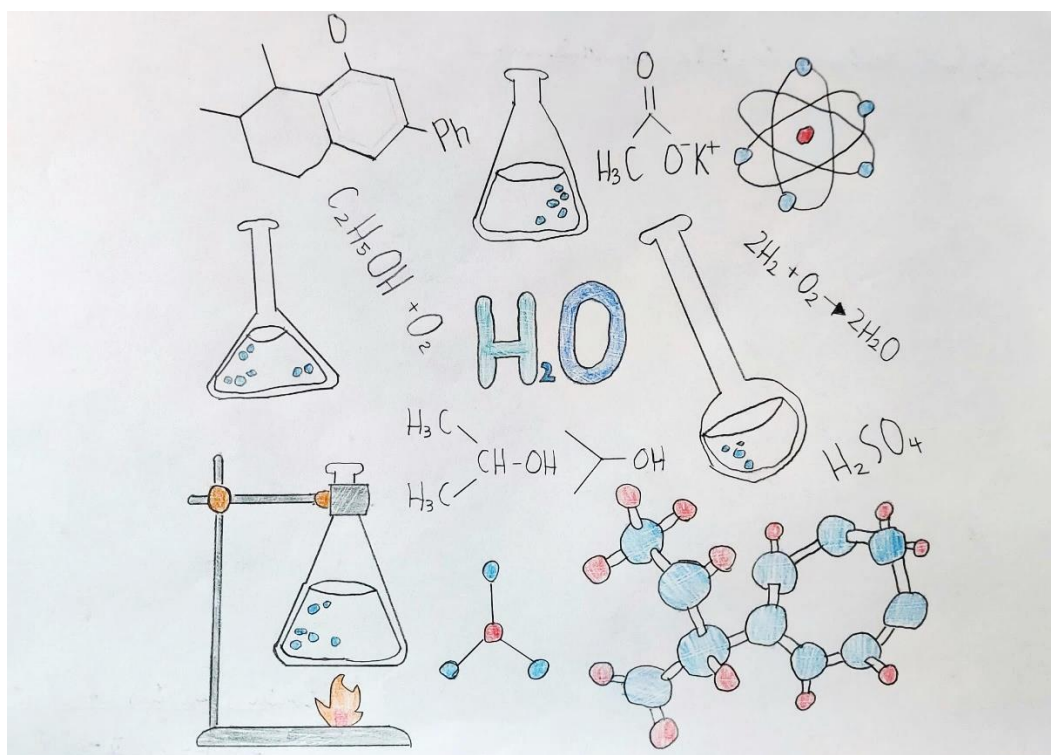 O
Ph
O
H₃C O⁻K⁺
C₂H₅OH + O₂
2H₂ + O₂ → 2H₂O
H₂O
H₃C
CH-OH
H₃C
OH
H₂SO₄